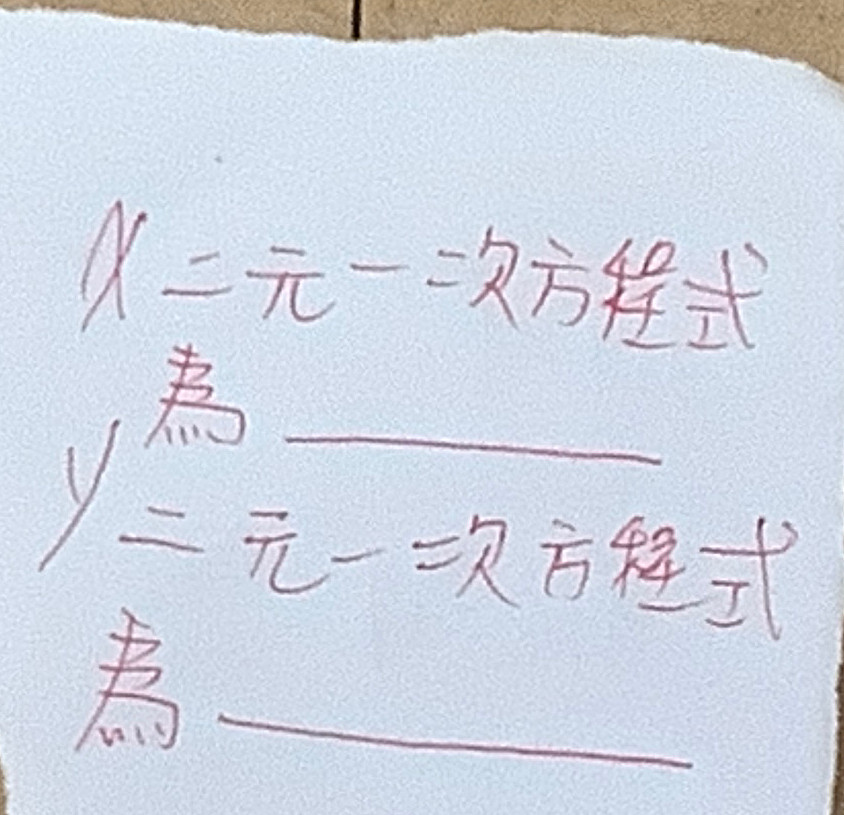 x 二元一次方程式
為
y 二元一次方程式
為